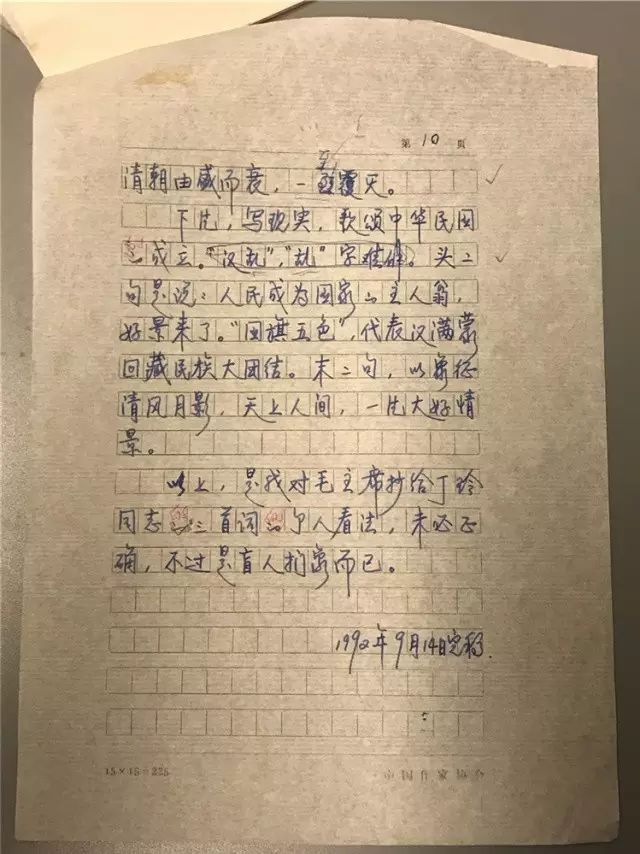 第 10 页
清朝由盛而衰，一至覆灭。
下片，写现实，歌颂中华民国
的成立。“汉乱”，“乱”字难解。头二
句是说：人民成为国家的主人翁，
好景来了。“国旗五色”，代表汉满蒙
回藏民族大团结。末二句，以象征
清风月影，天上人间，一片大好情
景。
以上，是我对毛主席抄给丁玲
同志的三首词的个人看法，未必正
确，不过是盲人扪象而已。
1992年9月14日完稿.
15×15=225
中国作家协会